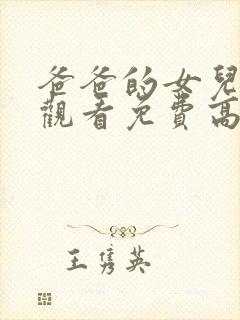 爸爸的女兒
觀看免費高
王雋英